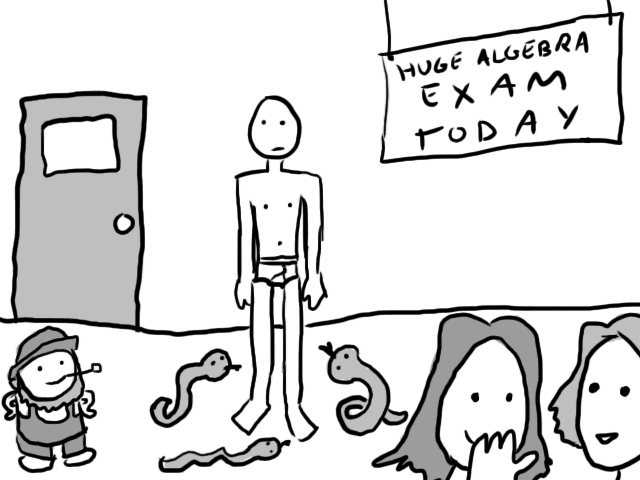 HUGE ALGEBRA
EXAM
TODAY